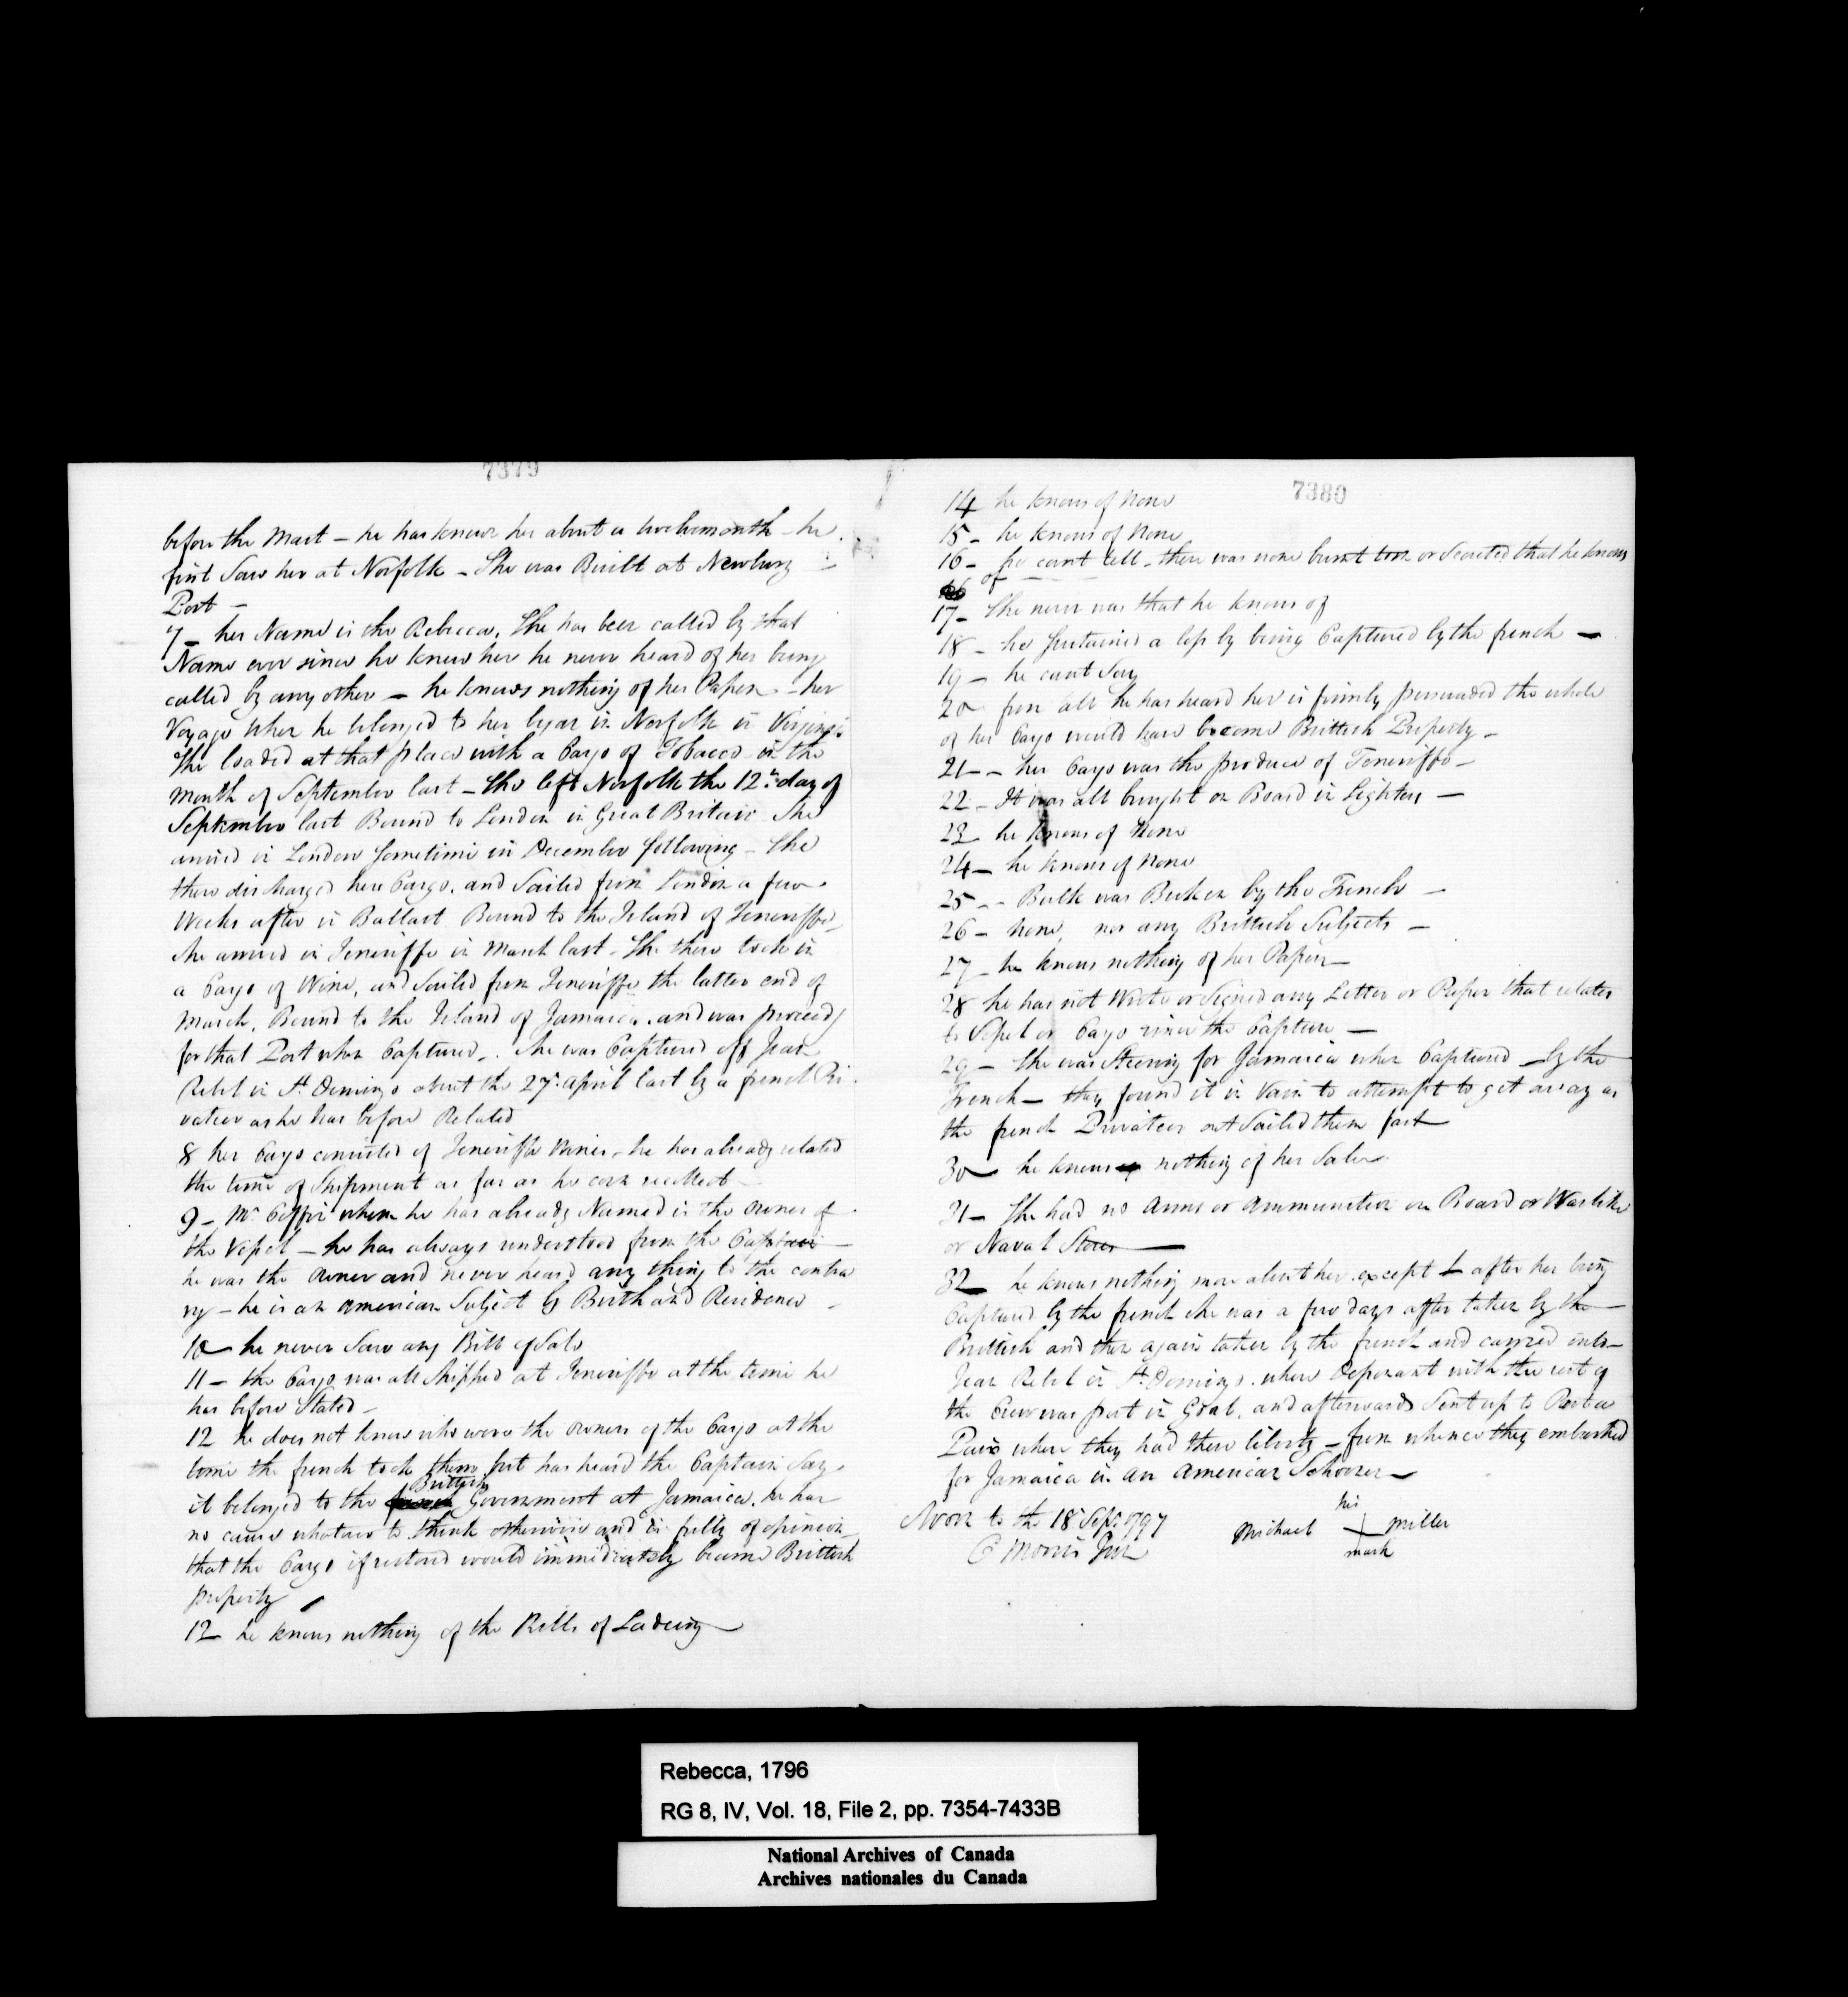 7379
before the Mast – he has known her about a twelvemonth – he
first Saw her at Norfolk – She was Built at Newbury
Port –
7 – her Name is the Rebecca, She has been called by that
Name ever since he knew her he never heard of her being
called by any other – he knows nothing of her Papers – her
Voyage when he belonged to her began in Norfolk in Virginia
She loaded at that place with a Cargo of Tobacco in the
month of September last – She left Norfolk the 12th day of
September last Bound to London in Great Britain She
arrived in London Sometime in December following – She
there discharged here Cargo, and Sailed from London a few
Weeks after in Ballast Bound to the Island of Teneriffe,
She arrived in Teneriffe in March last – She there took in
a Cargo of Wine, and Sailed from Teneriffe the latter end of
March, Bound to the Island of Jamaica, and was proceedg
for that Port when Captured – She was Captured off Jean
Rebel in St. Domingo about the 27 April last by a french Pri
vateer as he has before Related
8 her Cargo consisted of Teneriffe Wines, he has already related
the time of Shipment as far as he can recollect –
9 – Mr. whom he has already Named is the owner of
the Vessel – he has always understood from the Captain
he was the owner and never heard any thing to the contra
ry – he is an American Subject by Birth and Residence –
10 he never Saw any Bill of Sale
11 – the Cargo was all Shipped at Teneriffe at the time he
has before Stated –
12 he does not know who were the owners of the Cargo at the
time the french took them but has heard the Captain Say
it belonged to the Brittish Government at Jamaica, he has
no cause whatever to think otherwise and is fully of opinion
that the Cargo if restored would immediately become Brittish
property
13 he knows nothing of the Bills of Ladeing
7380
14 he knows of None
15 – he knows of None
16 – he cant tell – there was none burnt torn or Secreted that he knows
of
17 – She never was that he knows of
18 – he Sustained a loss by being Captured by the french –
19 – he cant Say
20 from all he has heard her is firmly persuaded the whole
of her Cargo would have become Brittish Property –
21 – her Cargo was the produce of Teneriffe –
22 – It was all brought on Board in Lighters –
23 he knows of None
24 – he knows of None
25 – Bulk was Broken by the French –
26 – None, nor any Brittish Subjects –
27 – he knows nothing of her Papers –
28 he has not Wrote or Signed any Letter or Paper that relates
to Vessel or Cargo since the Capture –
29 – She was Steering for Jamaica when Captured by the
French – they found it in Vain to attempt to get away as
the french Privateer out Sailed them fast
30 he knows nothing of her Sale
31 – She had no Arms or Ammunition on Board or Warlike
or Naval Stores
32 he knows nothing more about her except after her being
Captured by the french she was a few days after taken by the
Brittish and then again taken by the french and carried into
Jean Rebel in St. Domingo where Deponant with the rest of
the Crew was put in Goal, and afterwards Sent up to Port au
Paix where they had there liberty – from whence they embarked
for Jamaica in an American Schooner –
Sworn to the 18 Sept. 1797
C Morris Junr
his
Michael Miller
mark
Rebecca, 1796
RG 8, IV, Vol. 18, File 2, pp. 7354-7433B
National Archives of Canada
Archives nationales du Canada